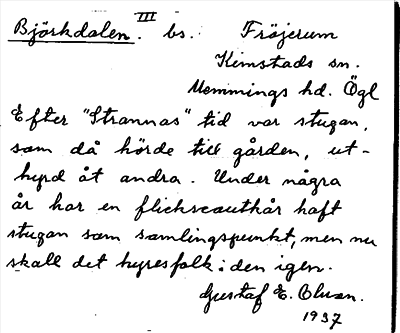 Björkdalen. III bs. Fröjerum
Kimstads sn.
Memmings hd. Ögl
Efter "Strannas" tid var stugan,
som då hörde till gården, ut-
hyrd åt andra. Under några
år har en flickscoutkår haft
stugan som samlingspunkt, men nu
skall det hyresfolk i den igen.
Gustaf E. Olsson.
1937